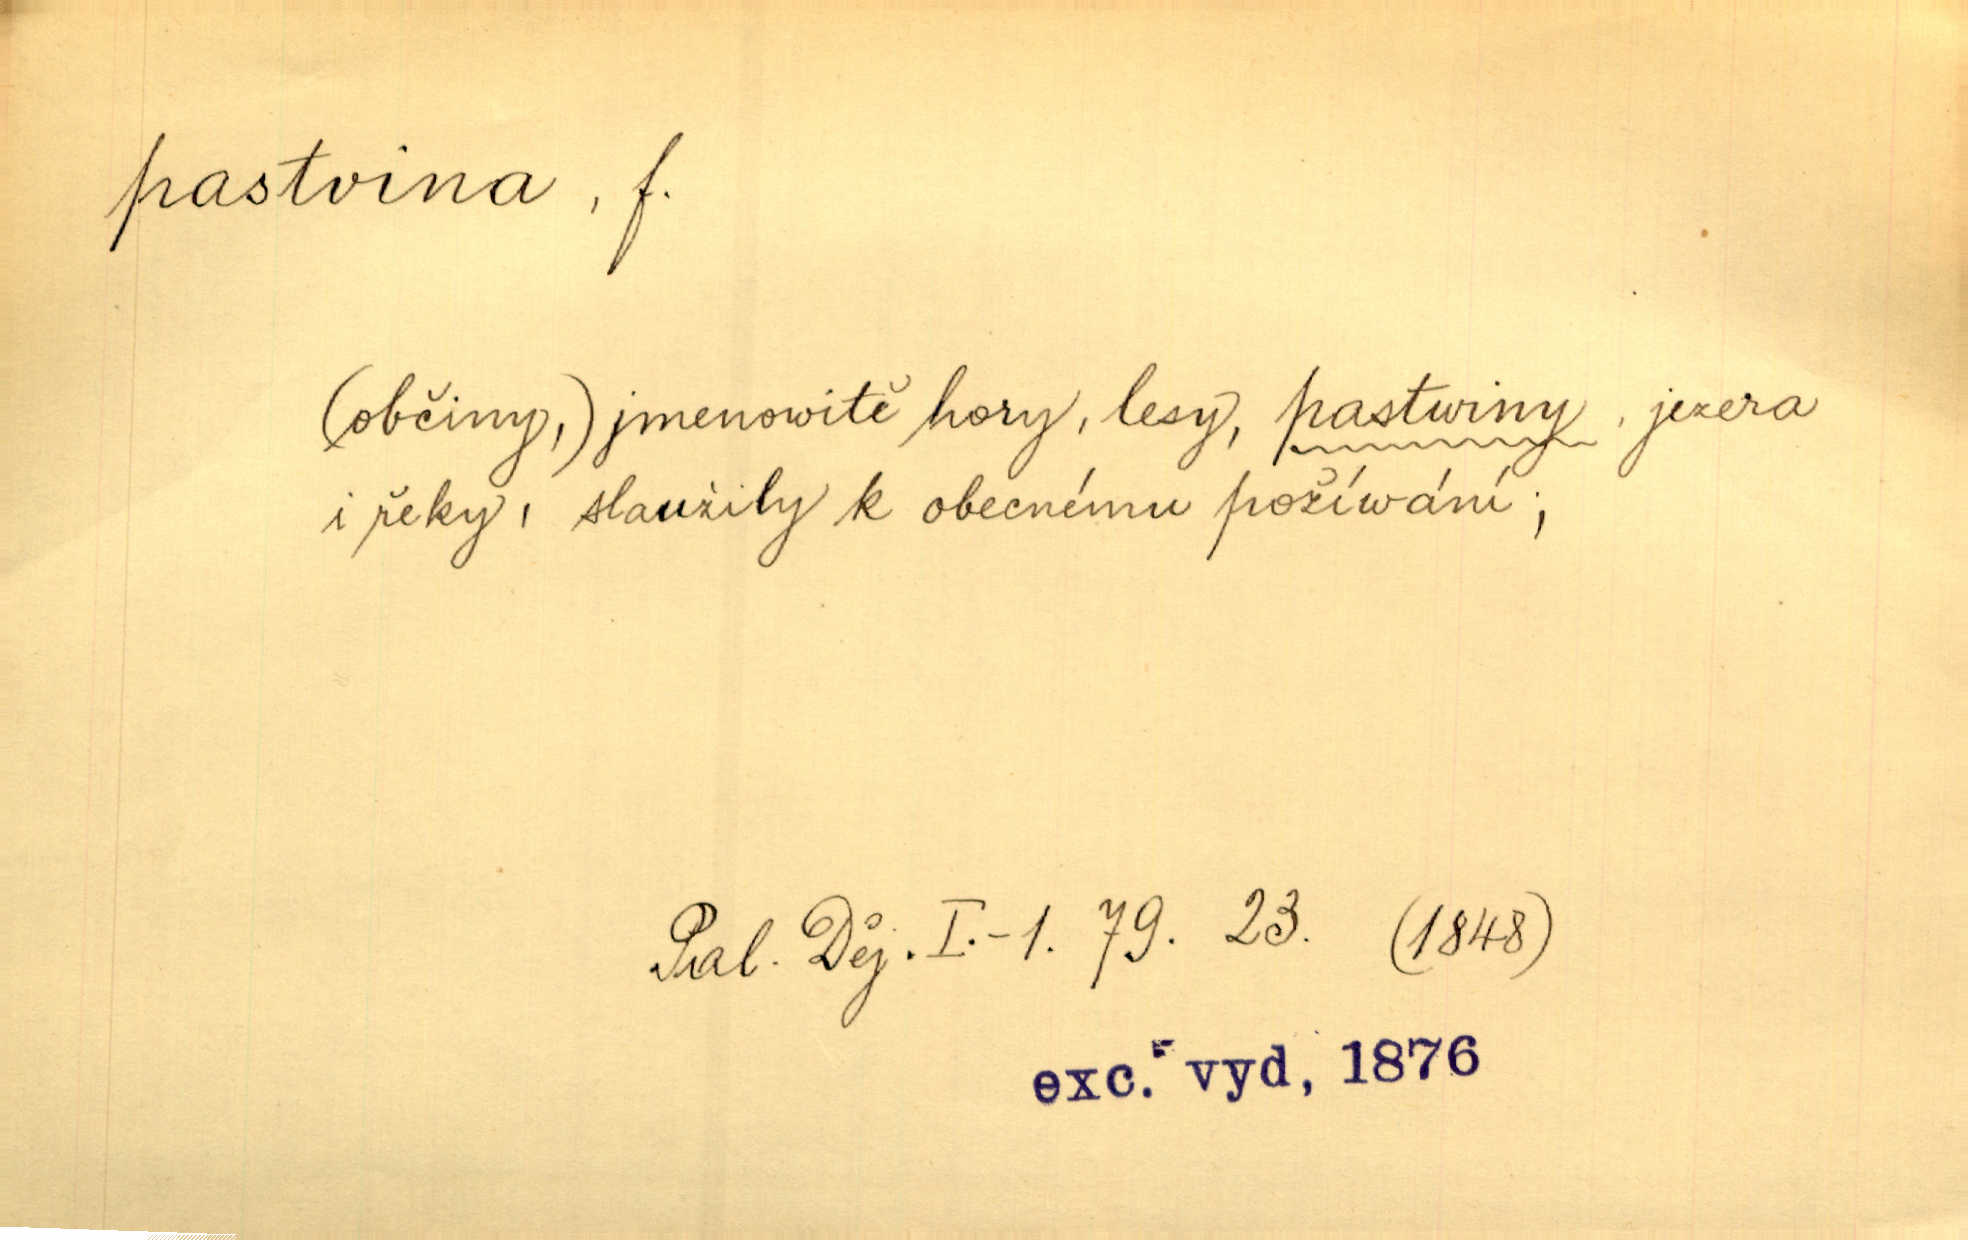 pastvina, f.
(občiny,) jmenowitě hory, lesy, pastwiny, jezera
i řeky, slaužily k obecnému požíwání;
Pal. Děj. I.-1. 79. 23. (1848)
exc. vyd, 1876